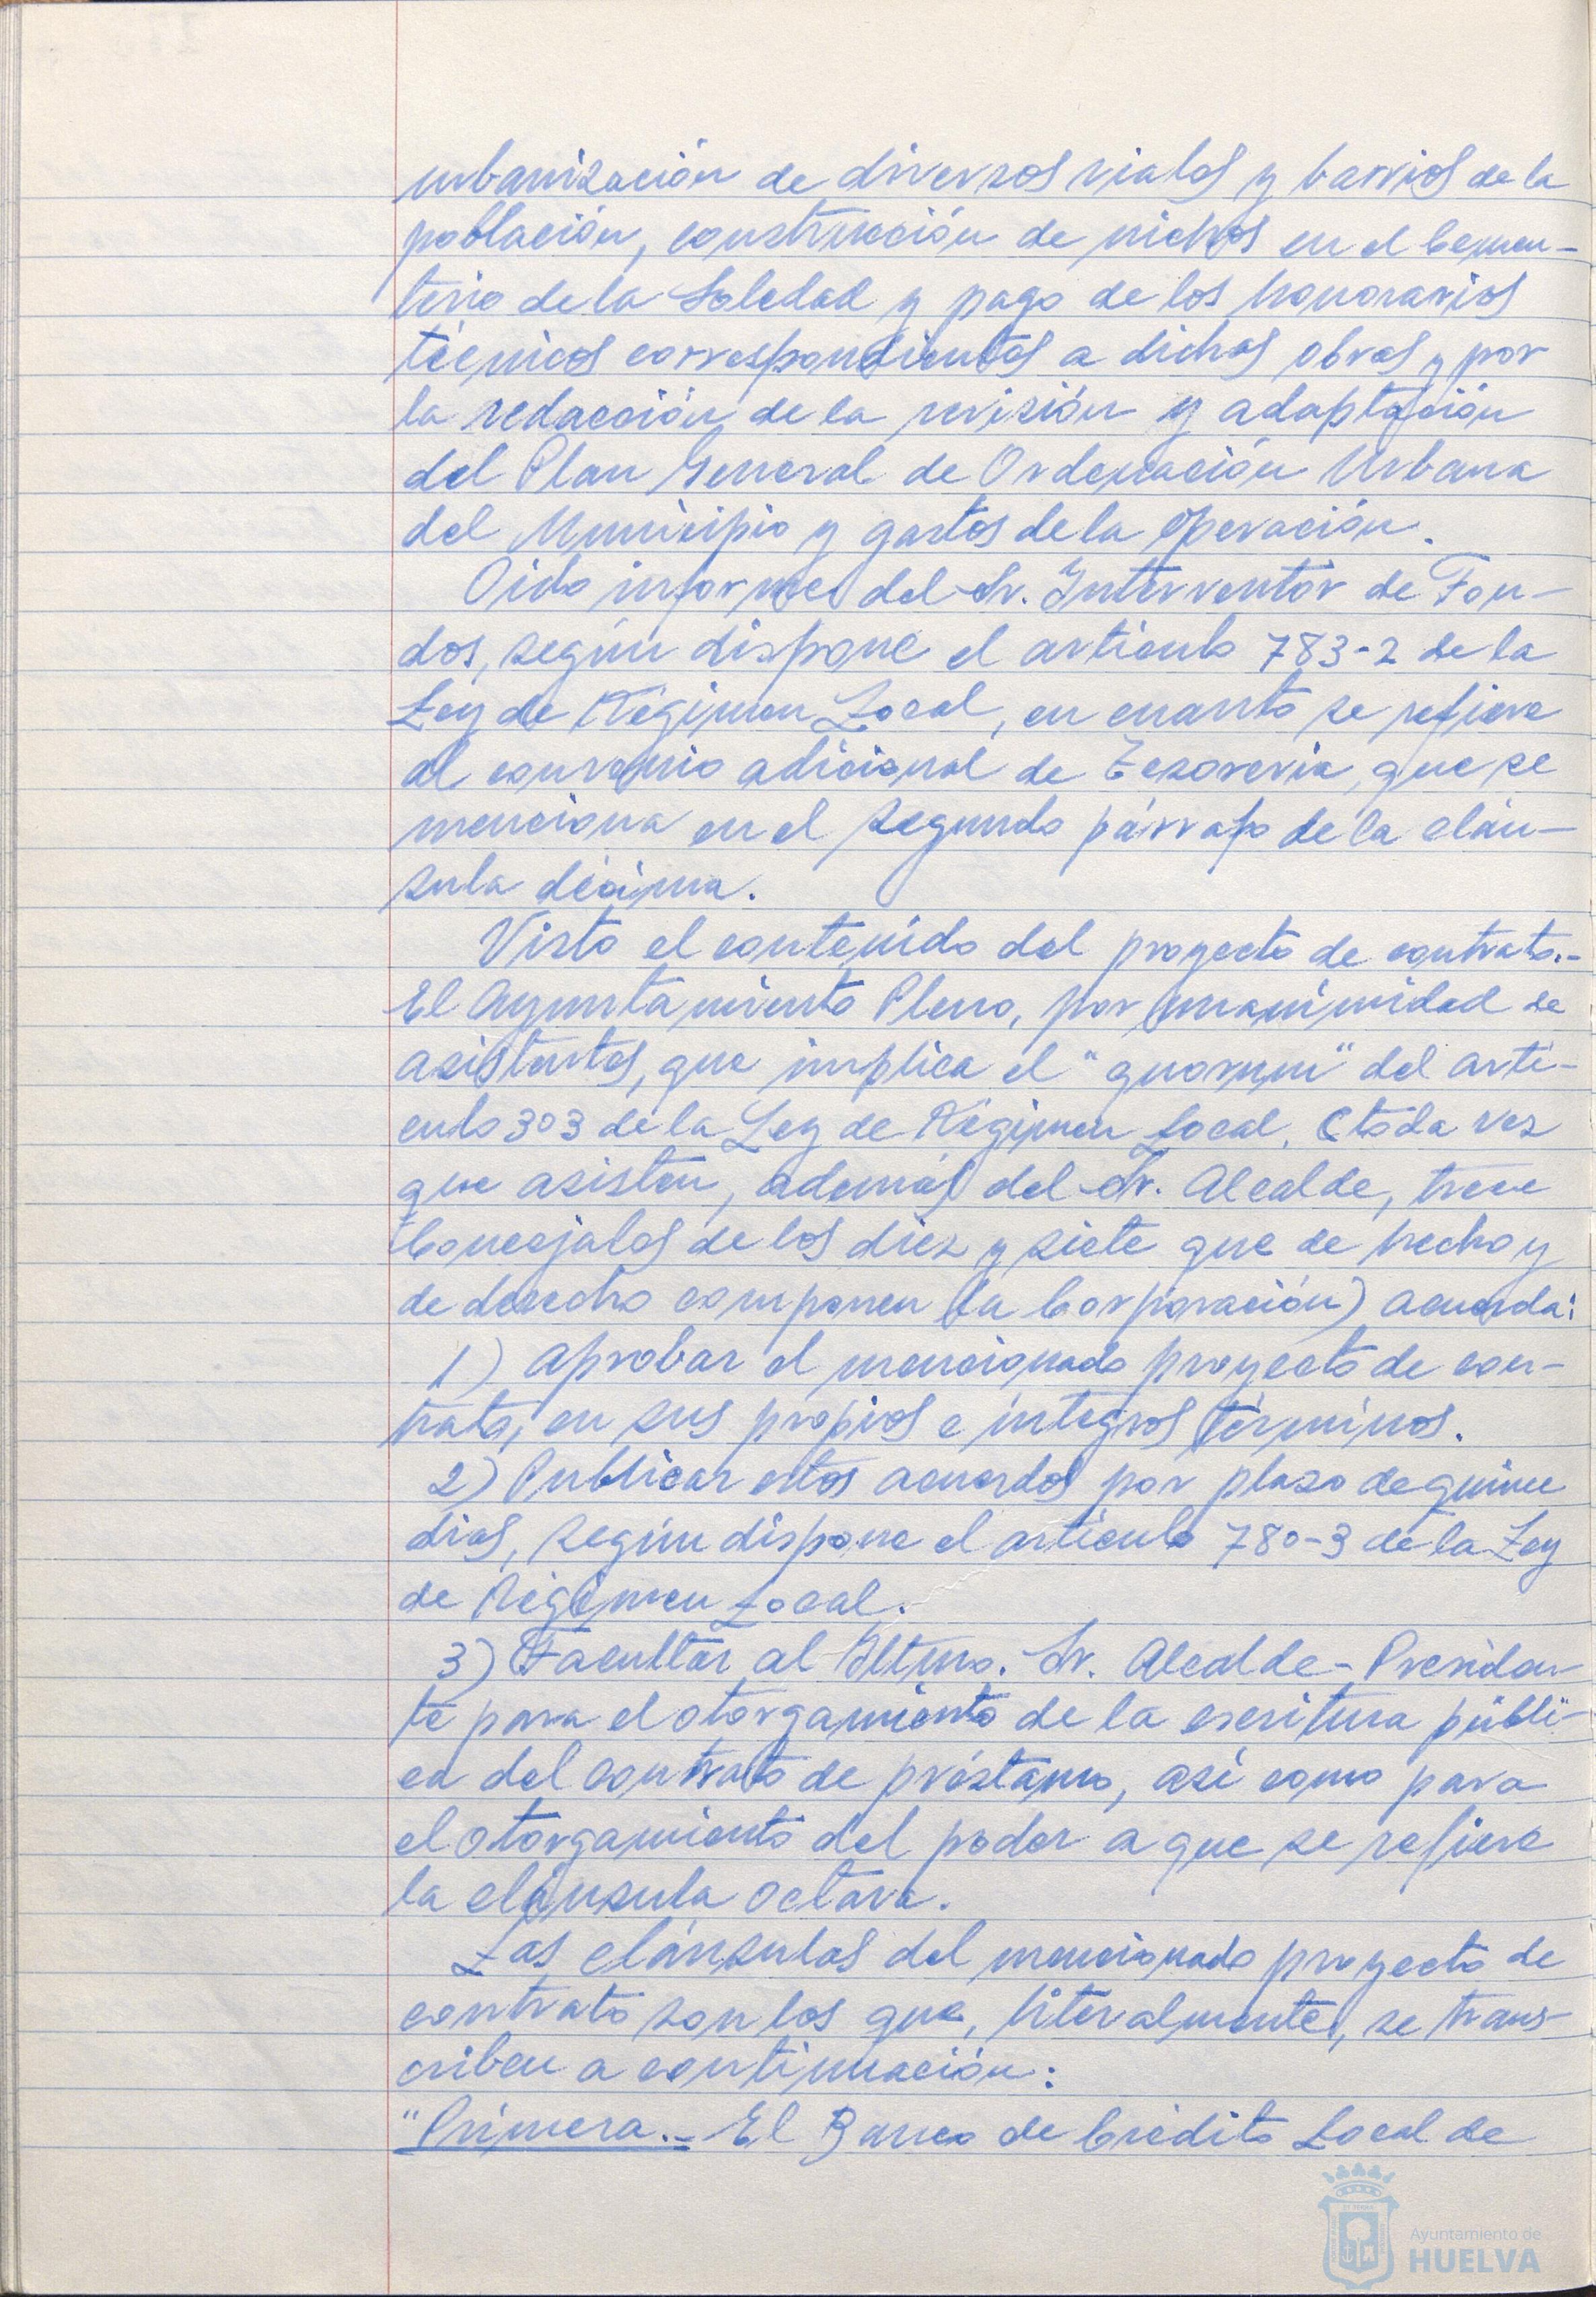 urbanización de diversos viales y barrios de la
población, construcción de nichos en el Cemen-
terio de la Soledad y pago de los honorarios
técnicos correspondientes a dichas obras y por
la redacción de la revisión y adaptación
del Plan General de Ordenación Urbana
del Municipio y gastos de la operación.
Oido informe del Sr. Interventor de Fon-
dos, según dispone el artículo 783-2 de la
Ley de Régimen Local, en cuanto se refiere
al convenio adicional de Tesorería, que se
menciona en el segundo párrafo de la cláu-
sula décima.
Visto el contenido del proyecto de contrato.-
El Ayuntamiento Pleno, por unanimidad de
asistentes, que implica el "quorum" del artí-
culo 303 de la Ley de Régimen Local, (toda vez
que asisten, además del Sr. Alcalde, trece
Concejales de los diez y siete que de hecho y
de derecho componen la Corporación) acuerda:
1) Aprobar el mencionado proyecto de con-
trato, en sus propios e íntegros términos.
2) Publicar estos acuerdos por plazo de quince
días, según dispone el artículo 780-3 de la Ley
de Régimen Local.
3) Facultar al Iltmo. Sr. Alcalde-Presiden-
te para el otorgamiento de la escritura públi-
ca del contrato de préstamo, así como para
el otorgamiento del poder a que se refiere
la cláusula octava.
Las cláusulas del mencionado proyecto de
contrato son los que, literalmente, se trans-
criben a continuación:
"Primera.- El Banco de Crédito Local de
Ayuntamiento de
HUELVA